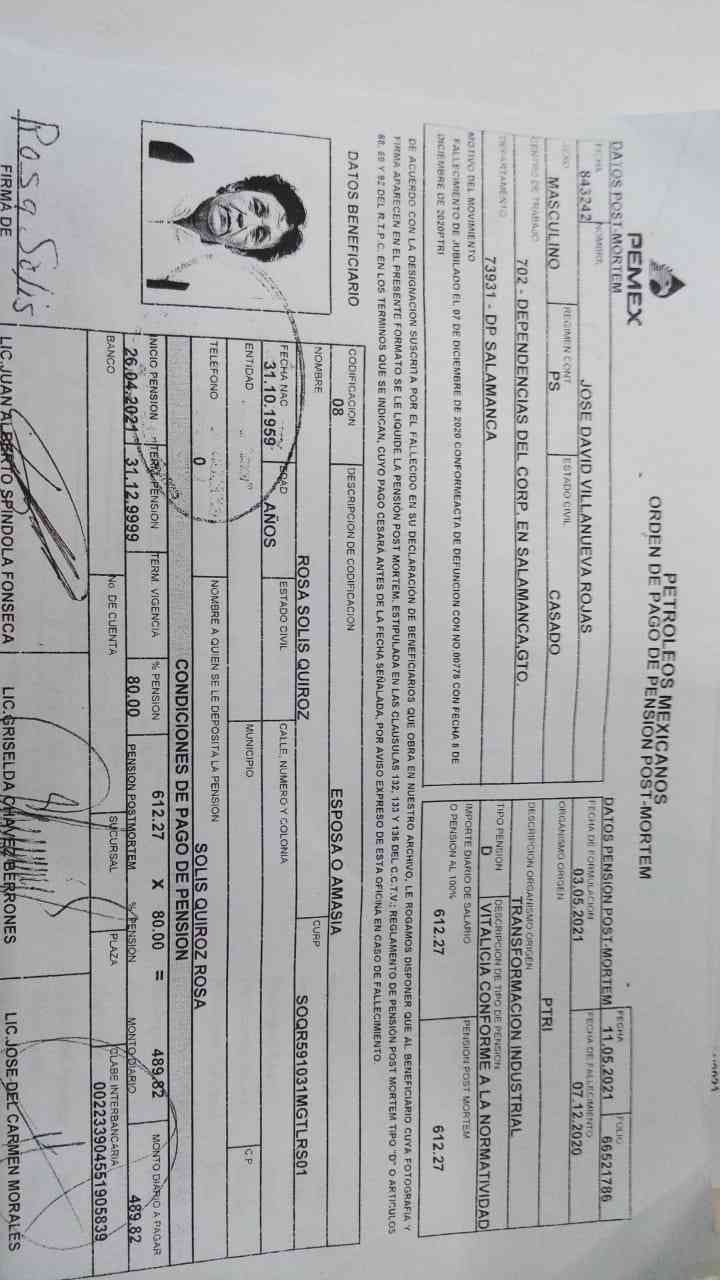 PEMEX
PETROLEOS MEXICANOS
ORDEN DE PAGO DE PENSION POST-MORTEM
DATOS POST-MORTEM
FICHA
843242
NOMBRE
JOSE DAVID VILLANUEVA ROJAS
SEXO
MASCULINO
REGIMEN CONT
PS
ESTADO CIVIL
CASADO
CENTRO DE TRABAJO
702 - DEPENDENCIAS DEL CORP. EN SALAMANCA,GTO.
DEPARTAMENTO
73931 - DP SALAMANCA
MOTIVO DEL MOVIMIENTO
FALLECIMIENTO DE JUBILADO EL 07 DE DICIEMBRE DE 2020 CONFORMEACTA DE DEFUNCION CON NO 00778 CON FECHA 8 DE
DICIEMBRE DE 2020PTRI
DATOS PENSION POST-MORTEM
FECHA
11.05.2021
FOLIO
66521786
FECHA DE FORMULACION
03.05.2021
FECHA DE FALLECIMIENTO
07.12.2020
ORGANISMO ORIGEN
PTRI
DESCRIPCION ORGANISMO ORIGEN
TRANSFORMACION INDUSTRIAL
TIPO PENSION
D
DESCRIPCION DE TIPO DE PENSION
VITALICIA CONFORME A LA NORMATIVIDAD
IMPORTE DIARIO DE SALARIO
O PENSION AL 100%
612.27
PENSION POST MORTEM
612.27
DE ACUERDO CON LA DESIGNACION SUSCRITA POR EL FALLECIDO EN SU DECLARACIÓN DE BENEFICIARIOS QUE OBRA EN NUESTRO ARCHIVO, LE ROGAMOS DISPONER QUE AL BENEFICIARIO CUYA FOTOGRAFIA Y
FIRMA APARECEN EN EL PRESENTE FORMATO SE LE LIQUIDE LA PENSIÓN POST MORTEM, ESTIPULADA EN LAS CLAUSULAS 132, 133 Y 136 DEL C.C.T.V.; REGLAMENTO DE PENSIÓN POST MORTEM TIPO "D" O ARTICULOS
68, 69 Y 92 DEL R.T.P.C. EN LOS TERMINOS QUE SE INDICAN, CUYO PAGO CESARÁ ANTES DE LA FECHA SEÑALADA, POR AVISO EXPRESO DE ESTA OFICINA EN CASO DE FALLECIMIENTO.
DATOS BENEFICIARIO
CODIFICACION
08
DESCRIPCION DE CODIFICACION
ESPOSA O AMASIA
NOMBRE
ROSA SOLIS QUIROZ
CURP
SOQR591031MGTLRS01
FECHA NAC
31.10.1959
EDAD
AÑOS
ESTADO CIVIL
CALLE, NUMERO Y COLONIA
ENTIDAD
MUNICIPIO
C.P
TELEFONO
0
NOMBRE A QUIEN SE LE DEPOSITA LA PENSION
SOLIS QUIROZ ROSA
CONDICIONES DE PAGO DE PENSION
INICIO PENSION
26.04.2021
TERM. PENSION
31.12.9999
TERM. VIGENCIA
% PENSION
80.00
PENSION POSTMORTEM
612.27 X
% PENSION
80.00 =
MONTO DIARIO
489.82
MONTO DIARIO A PAGAR
489.82
BANCO
No. DE CUENTA
SUCURSAL
PLAZA
CLABE INTERBANCARIA
002233904551905839
Rosa Solis
FIRMA DE
LIC.JUAN ALBERTO SPINDOLA FONSECA
LIC.GRISELDA CHAVEZ BERRONES
LIC.JOSE DEL CARMEN MORALES